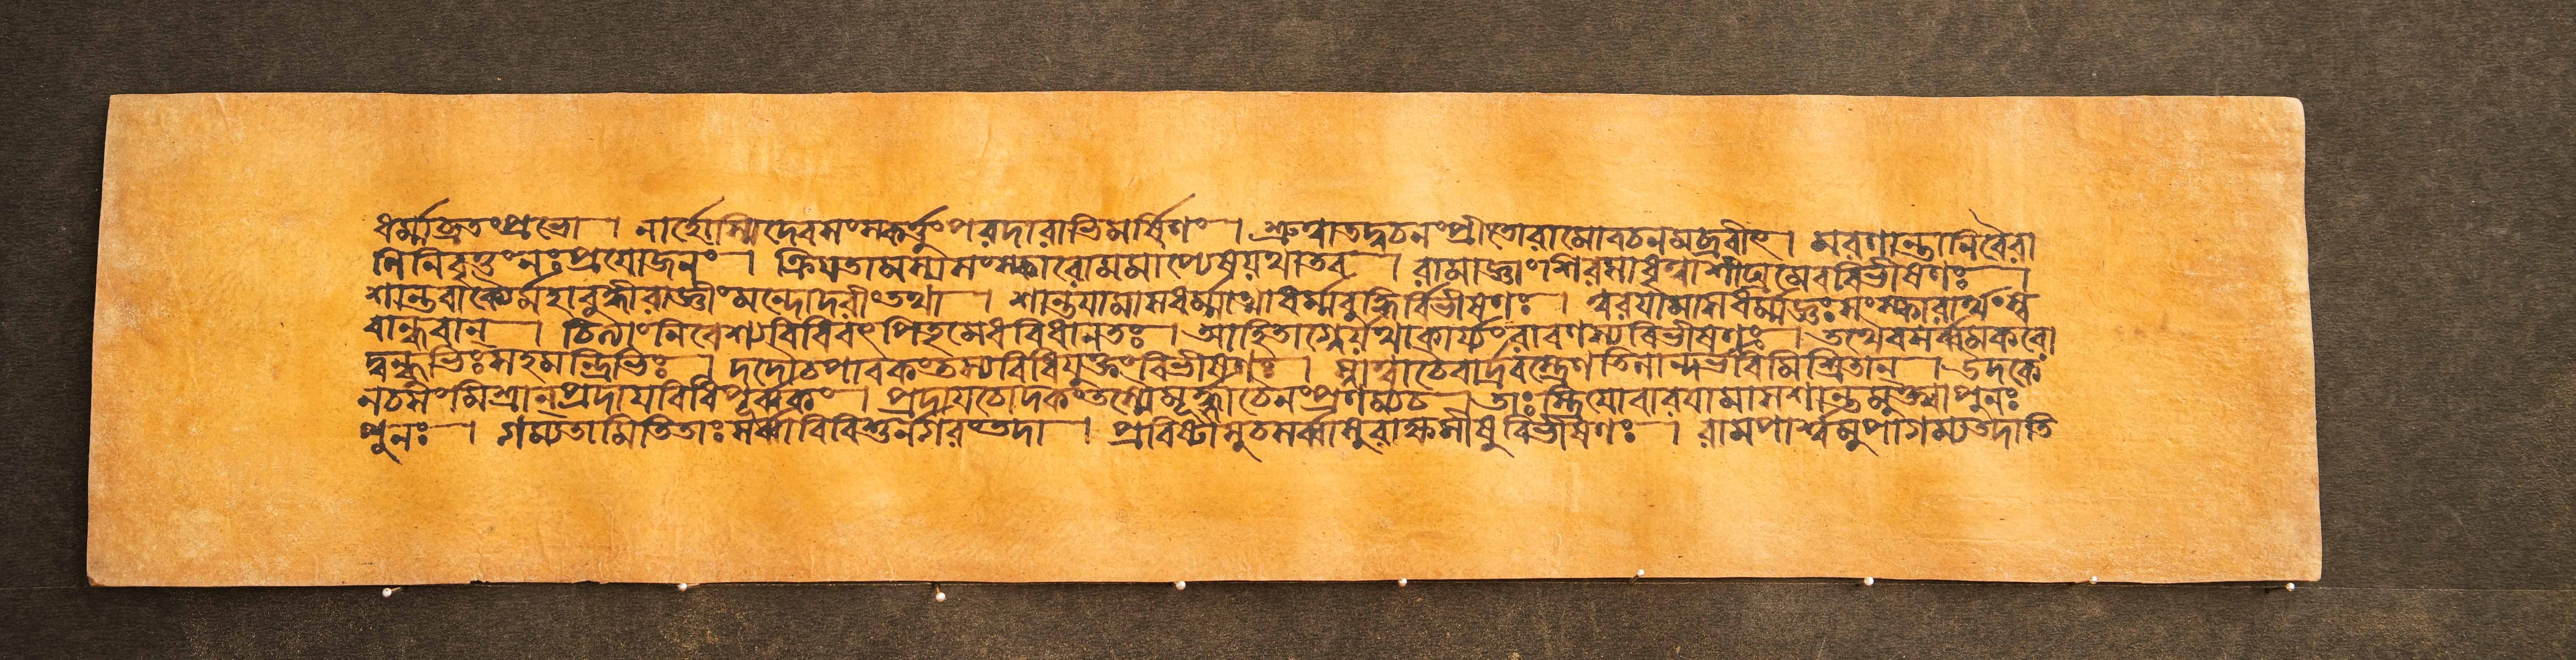 ধর্ম্মাকৃতঃপ্রভো । নার্হোস্মিদেবসংস্কর্ত্তুংপরদারাভিমর্ষিণং । শ্রুত্বাতদ্বচনংপ্রীতোরামোবচনমব্রবীৎ । মরণান্তানিবৈরা
নিনিবৃত্তংনঃপ্রযোজনং । ক্রিযতামস্যসংস্কারোমমাপ্যেষযথাতব । রামাজ্ঞাংশিরসাধৃত্বাশীঘ্রমেববিভীষণঃ ।
শান্ত্ববাক্যৈর্মহাবুদ্ধীরাজ্ঞীংমন্দোদরীংতথা । শান্ত্বযামাসধর্ম্মাত্মাধর্ম্মবুদ্ধির্বিভীষণঃ । ত্বরযামাসধর্ম্মজ্ঞঃসংস্কারার্থংস্ব
বান্ধবান্ । চিত্যাংনিবেশ্যবিধিবৎপিতৃমেধবিধানতঃ । আহিতাগ্নের্যথাকার্য্যংরাবণস্যবিভীষণঃ । তথৈবসর্ব্বমকরো
দ্বন্ধুভিঃসহমন্ত্রিভিঃ । দদৌচপাবকংতস্যবিধিযুক্তংবিভীষণঃ । স্নাত্বাচৈবার্দ্রবস্ত্রেণতিলান্দর্ভবিমিশ্রিতান্ । উদকে
নচসংমিশ্রান্প্রদাযবিধিপূর্ব্বকং । প্রদাযচোদকংতস্মৈমূর্দ্ধ্নাচৈনংপ্রণম্যচ । তাঃস্ত্রিযোবারযামাসশান্ত্বমুক্ত্বাপুনঃ
পুনঃ । গম্যতামিতিতাঃসর্ব্বাবিবিশুর্নগরংতদা । প্রবিষ্টাসুচসর্ব্বাসুরাক্ষসীষুবিভীষণঃ । রামপার্শ্বমুপাগম্যতদাতি